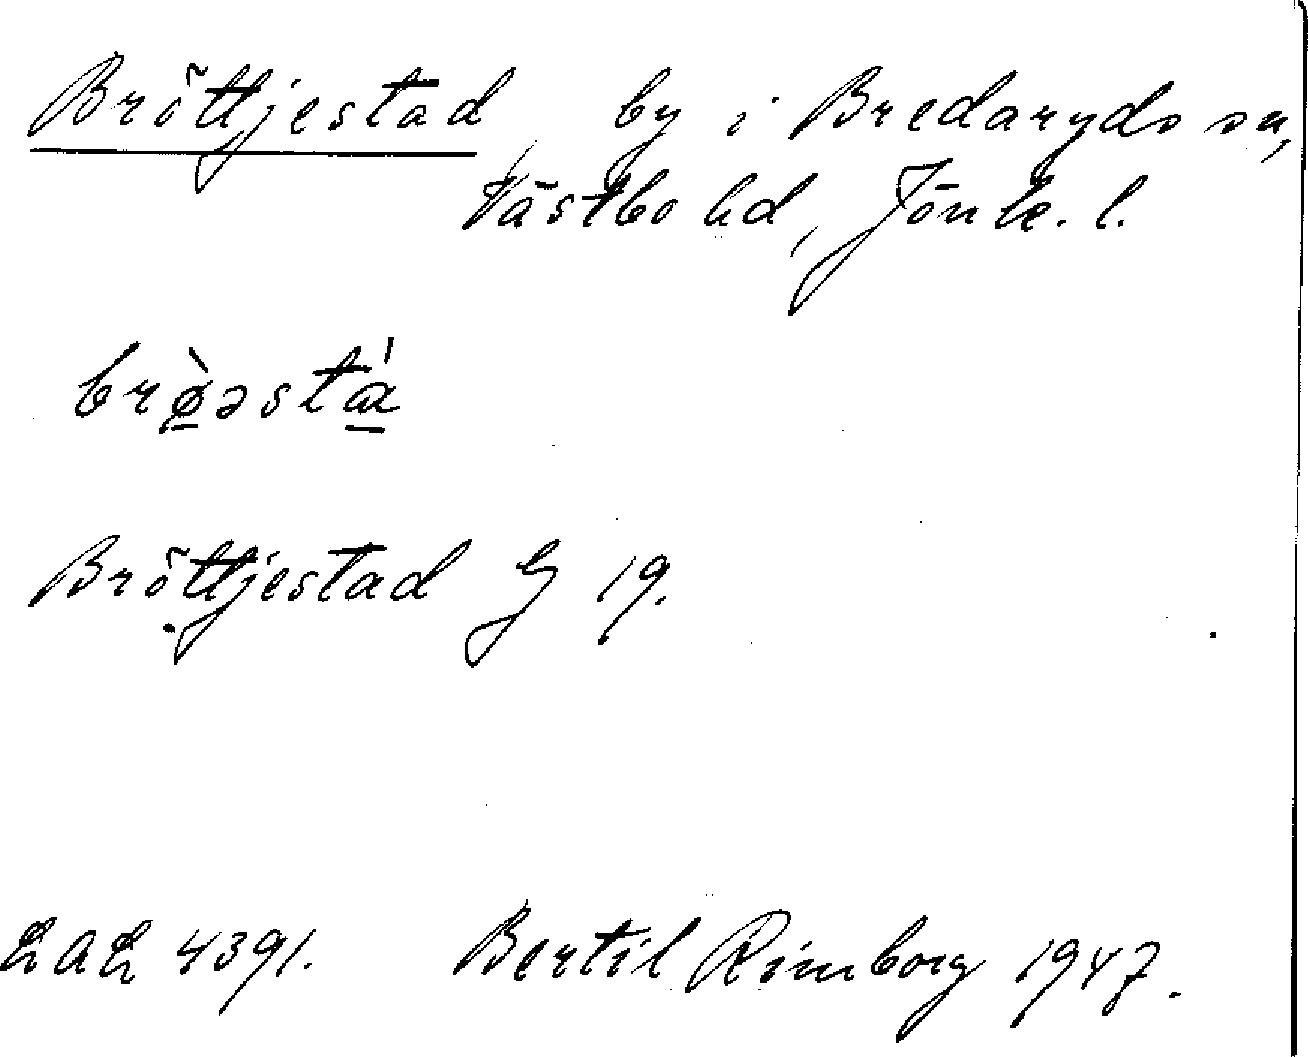 Bröttjestad, by i Bredaryds sn,
Västbo hd, Jönk. l.
brø̀əstá
Bröttjestad G 19.
LAL 4391. Bertil Rimborg 1947.